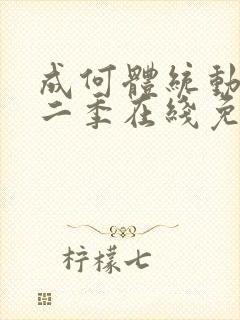 成何體統動
二季在綫免
柠檬七